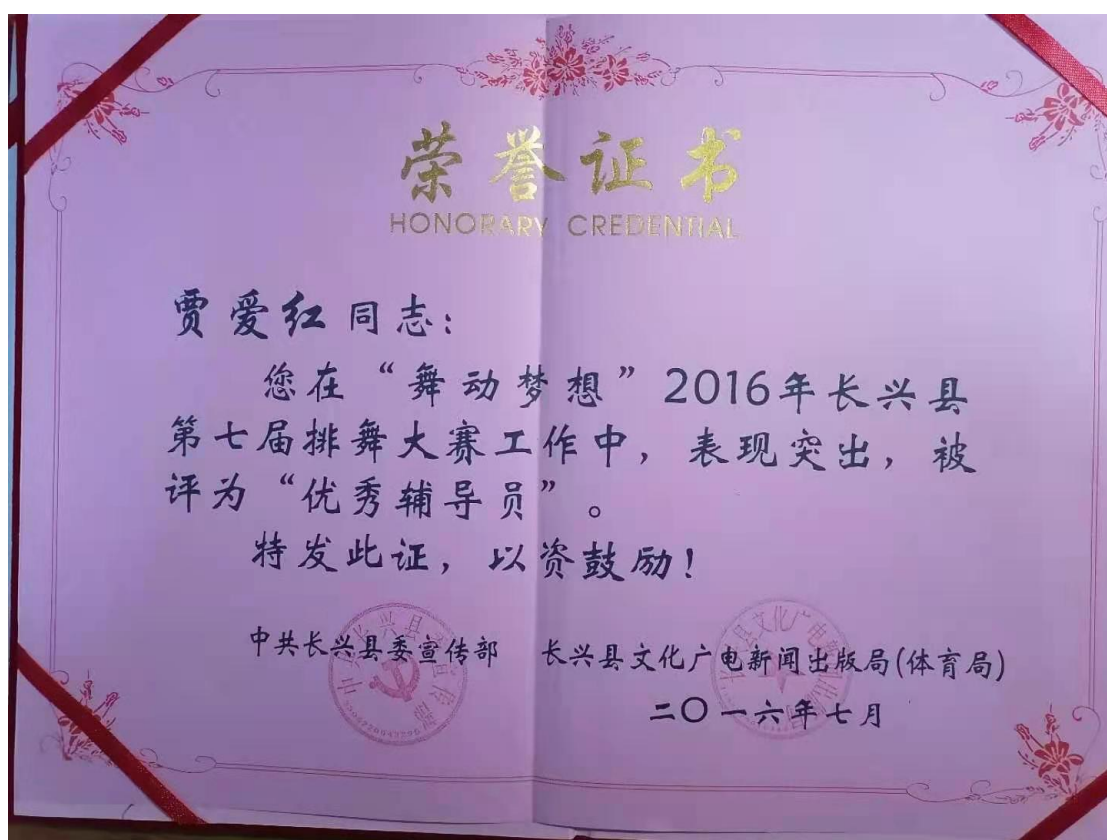 荣誉证书
HONORARY CREDENTIAL
贾爱红同志:
您在“舞动梦想”2016年长兴县
第七届排舞大赛工作中,表现突出,被
评为“优秀辅导员”。
特发此证,以资鼓励!
中共长兴县委宣传部 长兴县文化广电新闻出版局(体育局)
二〇一六年七月